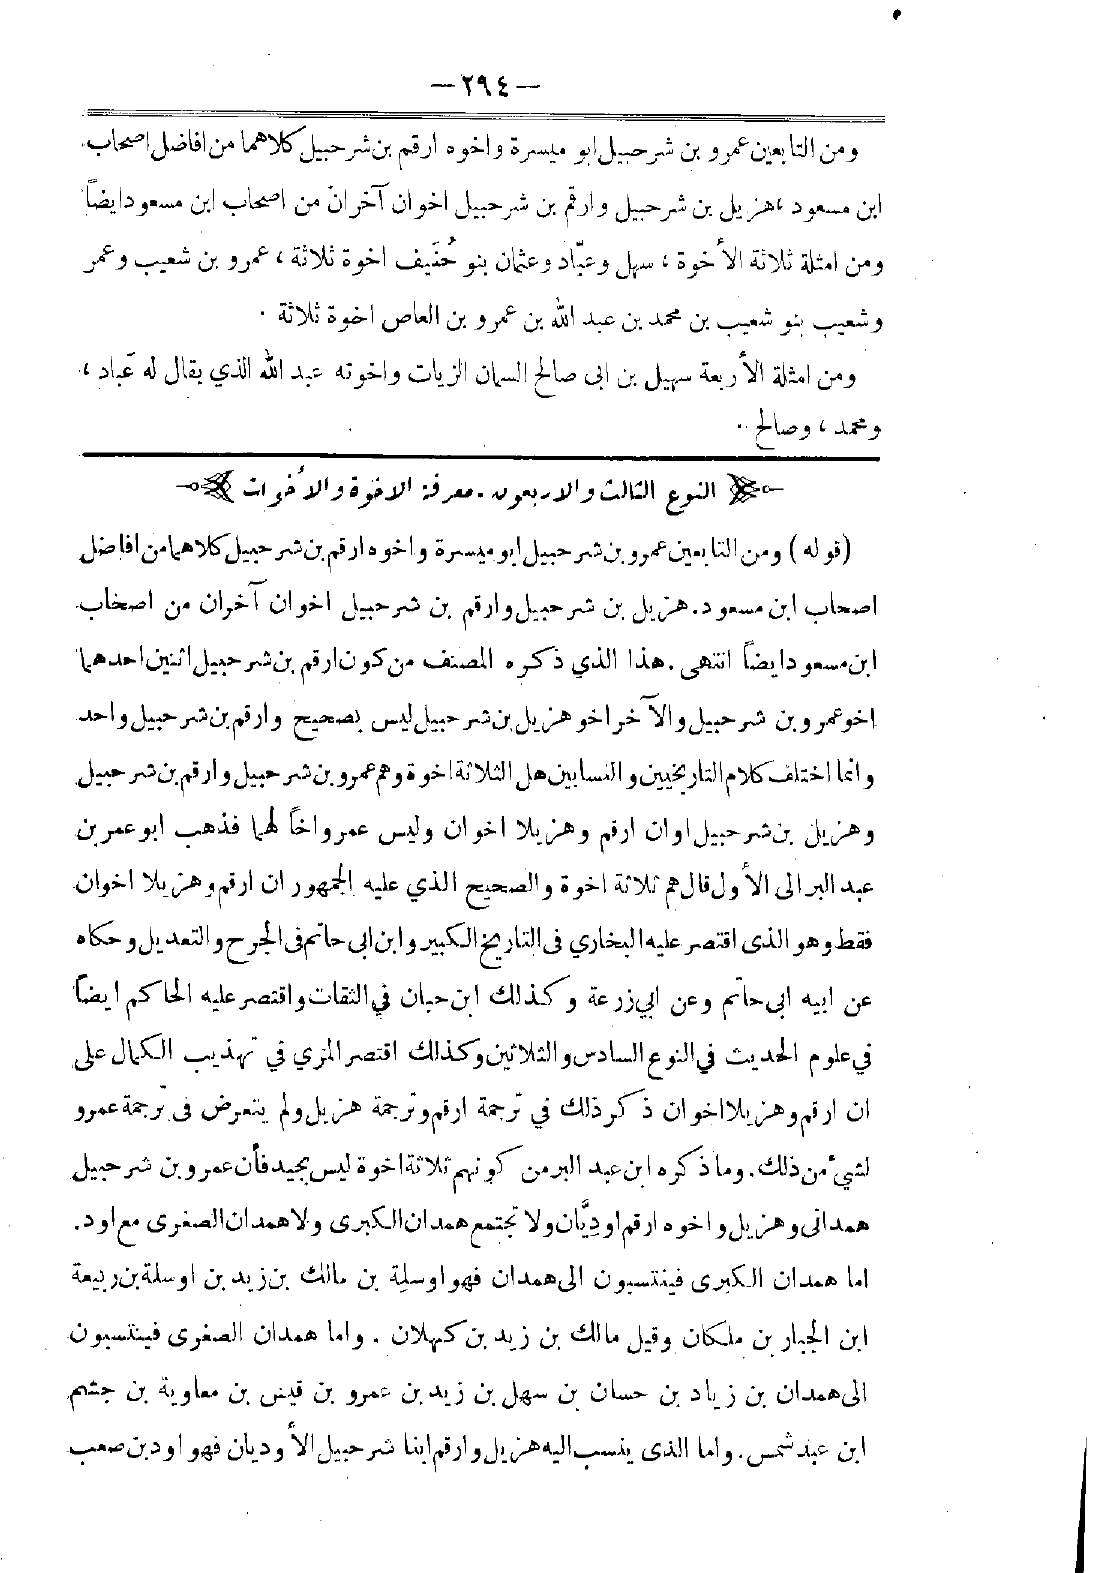 — ٢٩٤ —
ومن التابعين عمرو بن شرحبيل ابو ميسرة واخوه ارقم بن شرحبيل كلاهما من افاضل اصحاب
ابن مسعود ، هزيل بن شرحبيل وارقم بن شرحبيل اخوان آخران من اصحاب ابن مسعود ايضاً
ومن امثلة ثلاثة الأخوة ، سهل وعبّاد وعثمان بنو حُنَيف اخوة ثلاثة ، عمرو بن شعيب وعمر
وشعيب بنو شعيب بن محمد بن عبد الله بن عمرو بن العاص اخوة ثلاثة .
ومن امثلة الأربعة سهيل بن ابى صالح السمان الزيات واخوته عبد الله الذي يقال له عباد ،
ومحمد ، وصالح ..
النوع الثالث والاربعون . معرفة الاخوة والأخوات
( قوله ) ومن التابعين عمرو بن شرحبيل ابو ميسرة واخوه ارقم بن شرحبيل كلاهما من افاضل
اصحاب ابن مسعود . هزيل بن شرحبيل وارقم بن شرحبيل اخوان آخران من اصحاب
ابن مسعود ايضاً انتهى . هذا الذي ذكره المصنف من كون ارقم بن شرحبيل اثنين احدهما
اخو عمرو بن شرحبيل والآخر اخو هزيل بن شرحبيل ليس بصحيح وارقم بن شرحبيل واحد
وانما اختلف كلام التاريخيين والنسابين هل الثلاثة اخوة وهم عمرو بن شرحبيل وارقم بن شرحبيل
وهزيل بن شرحبيل اوان ارقم وهزيلا اخوان وليس عمرو اخاً لهما فذهب ابو عمر بن
عبد البر الى الأول قال هم ثلاثة اخوة والصحيح الذي عليه الجمهور ان ارقم وهزيلا اخوان
فقط وهو الذى اقتصر عليه البخاري فى التاريخ الكبير وابن ابى حاتم فى الجرح والتعديل وحكاه
عن ابيه ابى حاتم وعن ابي زرعة وكذلك ابن حبان في الثقات واقتصر عليه الحاكم ايضاً
في علوم الحديث في النوع السادس والثلاثين وكذلك اقتصر المزي في تهذيب الكمال على
ان ارقم وهزيلا اخوان ذكر ذلك في ترجمة ارقم وترجمة هزيل ولم يتعرض فى ترجمة عمرو
لشيء من ذلك . وما ذكره ابن عبد البر من كونهم ثلاثة اخوة ليس بجيد فأن عمرو بن شرحبيل
همدانى وهزيل واخوه ارقم اودِيَّان ولا تجتمع همدان الكبرى ولا همدان الصغرى مع اود .
اما همدان الكبرى فينتسبون الى همدان فهو اوسلة بن مالك بن زيد بن اوسلة بن ربيعة
ابن الجبار بن ملكان وقيل مالك بن زيد بن كهلان . واما همدان الصغرى فينتسبون
الى همدان بن زياد بن حسان بن سهل بن زيد بن عمرو بن قيس بن معاوية بن جشم
ابن عبد شمس . واما الذى ينسب اليه هزيل وارقم ابنا شرحبيل الأوديان فهو اود بن صعب